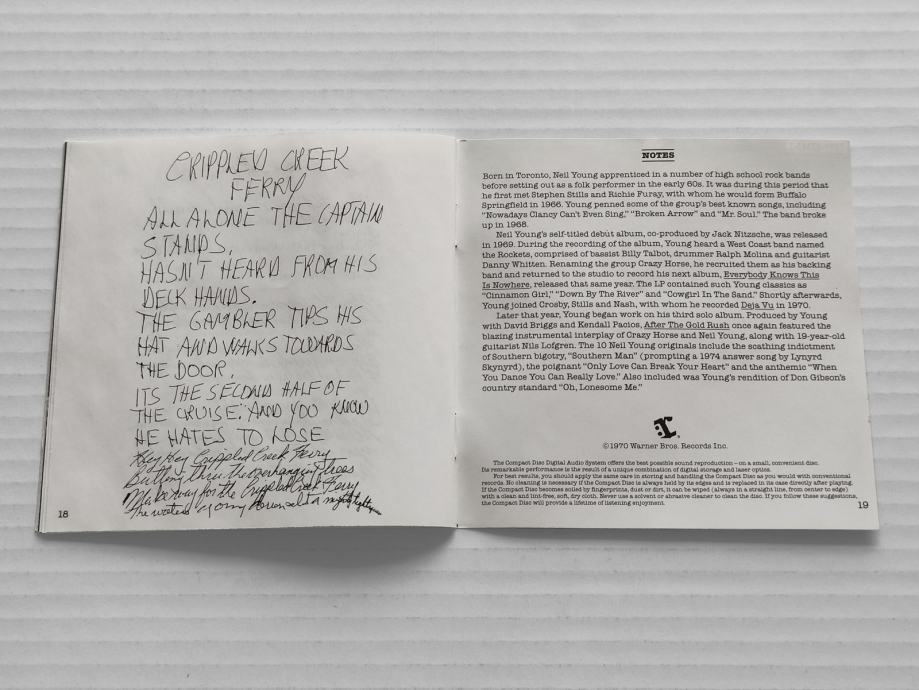 CRIPPLED CREEK
FERRY
ALL ALONE THE CAPTAIN
STANDS,
HASN'T HEARD FROM HIS
DECK HANDS.
THE GAMBLER TIPS HIS
HAT AND WALKS TOWARDS
THE DOOR.
ITS THE SECOND HALF OF
THE CRUISE. AND YOU KNOW
HE HATES TO LOSE
Hey Hey Crippled Creek Ferry
Butting thru the overhanging trees
Make way for the Crippled Creek Ferry
The waters going down
18
NOTES
Born in Toronto, Neil Young apprenticed in a number of high school rock bands
before setting out as a folk performer in the early 60s. It was during this period that
he first met Stephen Stills and Richie Furay, with whom he would form Buffalo
Springfield in 1966. Young penned some of the group's best known songs, including
"Nowadays Clancy Can't Even Sing," "Broken Arrow" and "Mr. Soul." The band broke
up in 1968.
Neil Young's self-titled debut album, co-produced by Jack Nitzsche, was released
in 1969. During the recording of the album, Young heard a West Coast band named
the Rockets, comprised of bassist Billy Talbot, drummer Ralph Molina and guitarist
Danny Whitten. Renaming the group Crazy Horse, he recruited them as his backing
band and returned to the studio to record his next album, Everybody Knows This
Is Nowhere, released that same year. The LP contained such Young classics as
"Cinnamon Girl," "Down By The River" and "Cowgirl In The Sand." Shortly afterwards,
Young joined Crosby, Stills and Nash, with whom he recorded Deja Vu in 1970.
Later that year, Young began work on his third solo album. Produced by Young
with David Briggs and Kendall Pacios, After The Gold Rush once again featured the
blazing instrumental interplay of Crazy Horse and Neil Young, along with 19-year-old
guitarist Nils Lofgren. The 10 Neil Young originals include the scathing indictment
of Southern bigotry, "Southern Man" (prompting a 1974 answer song by Lynyrd
Skynyrd), the poignant "Only Love Can Break Your Heart" and the anthemic "When
You Dance You Can Really Love." Also included was Young's rendition of Don Gibson's
country standard "Oh, Lonesome Me."
r:
©1970 Warner Bros. Records Inc.
The Compact Disc Digital Audio System offers the best possible sound reproduction – on a small, convenient disc.
Its remarkable performance is the result of a unique combination of digital storage and laser optics.
For best results, you should apply the same care in storing and handling the Compact Disc as you would with conventional
records. No cleaning is necessary if the Compact Disc is always held by its edges and is replaced in its case directly after playing.
If the Compact Disc becomes soiled by fingerprints, dust or dirt, it can be wiped (always in a straight line, from center to edge)
with a clean and lint-free, soft, dry cloth. Never use a solvent or abrasive cleaner to clean the disc. If you follow these suggestions,
the Compact Disc will provide a lifetime of listening enjoyment.
19